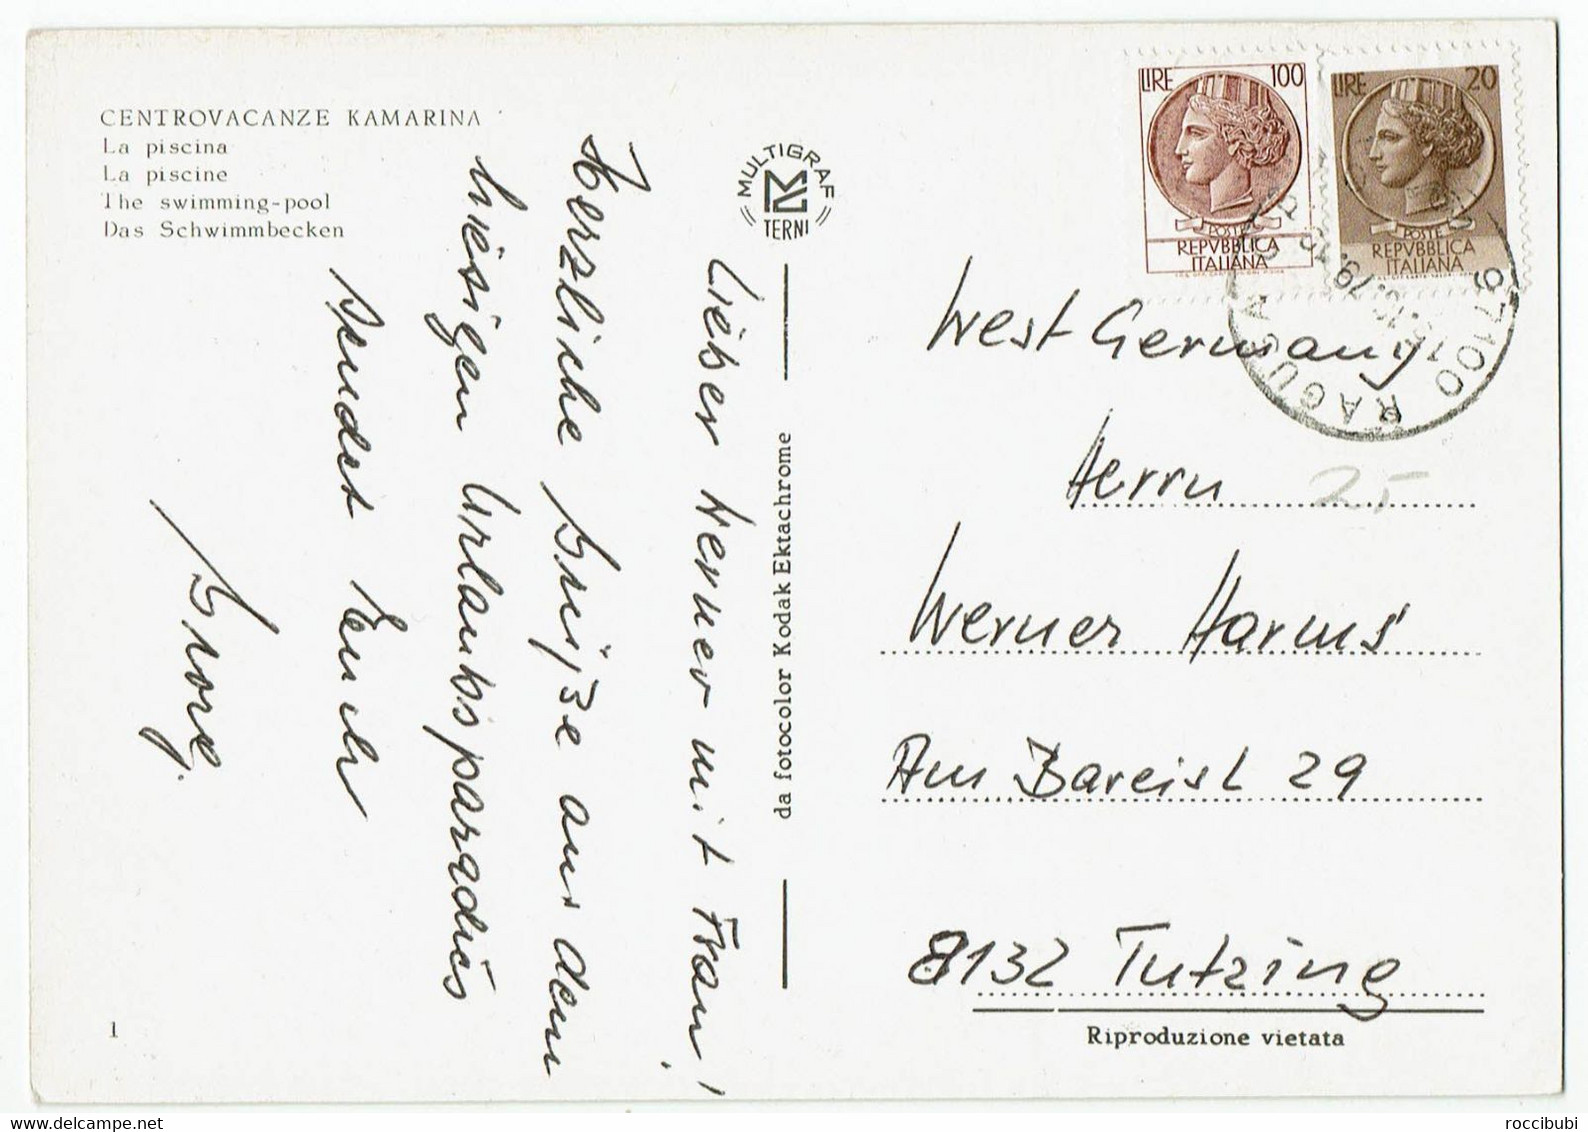 CENTROVACANZE KAMARINA
La piscina
La piscine
The swimming-pool
Das Schwimmbecken
Lieber Werner mit Frau!
Herzliche Grüße aus dem
hiesigen Urlaubsparadies
sendet Euch
Georg.
MULTIGRAF
TERNI
da fotocolor Kodak Ektachrome
LIRE 100
POSTE
REPVBBLICA
ITALIANA
LIRE 20
POSTE
REPVBBLICA
ITALIANA
97100 RAGUSA
West Germany
Herrn
25
Werner Harms
Am Bareisl 29
8132 Tutzing
Riproduzione vietata
1
delcampe.net
roccibubi